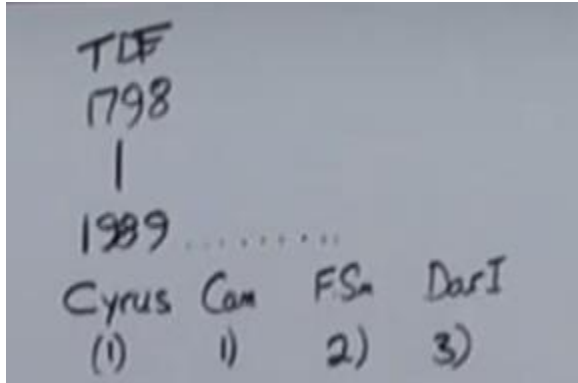 TOE
1798
|
1989 .........
Cyrus Cam FSm DarI
(1) 1) 2) 3)